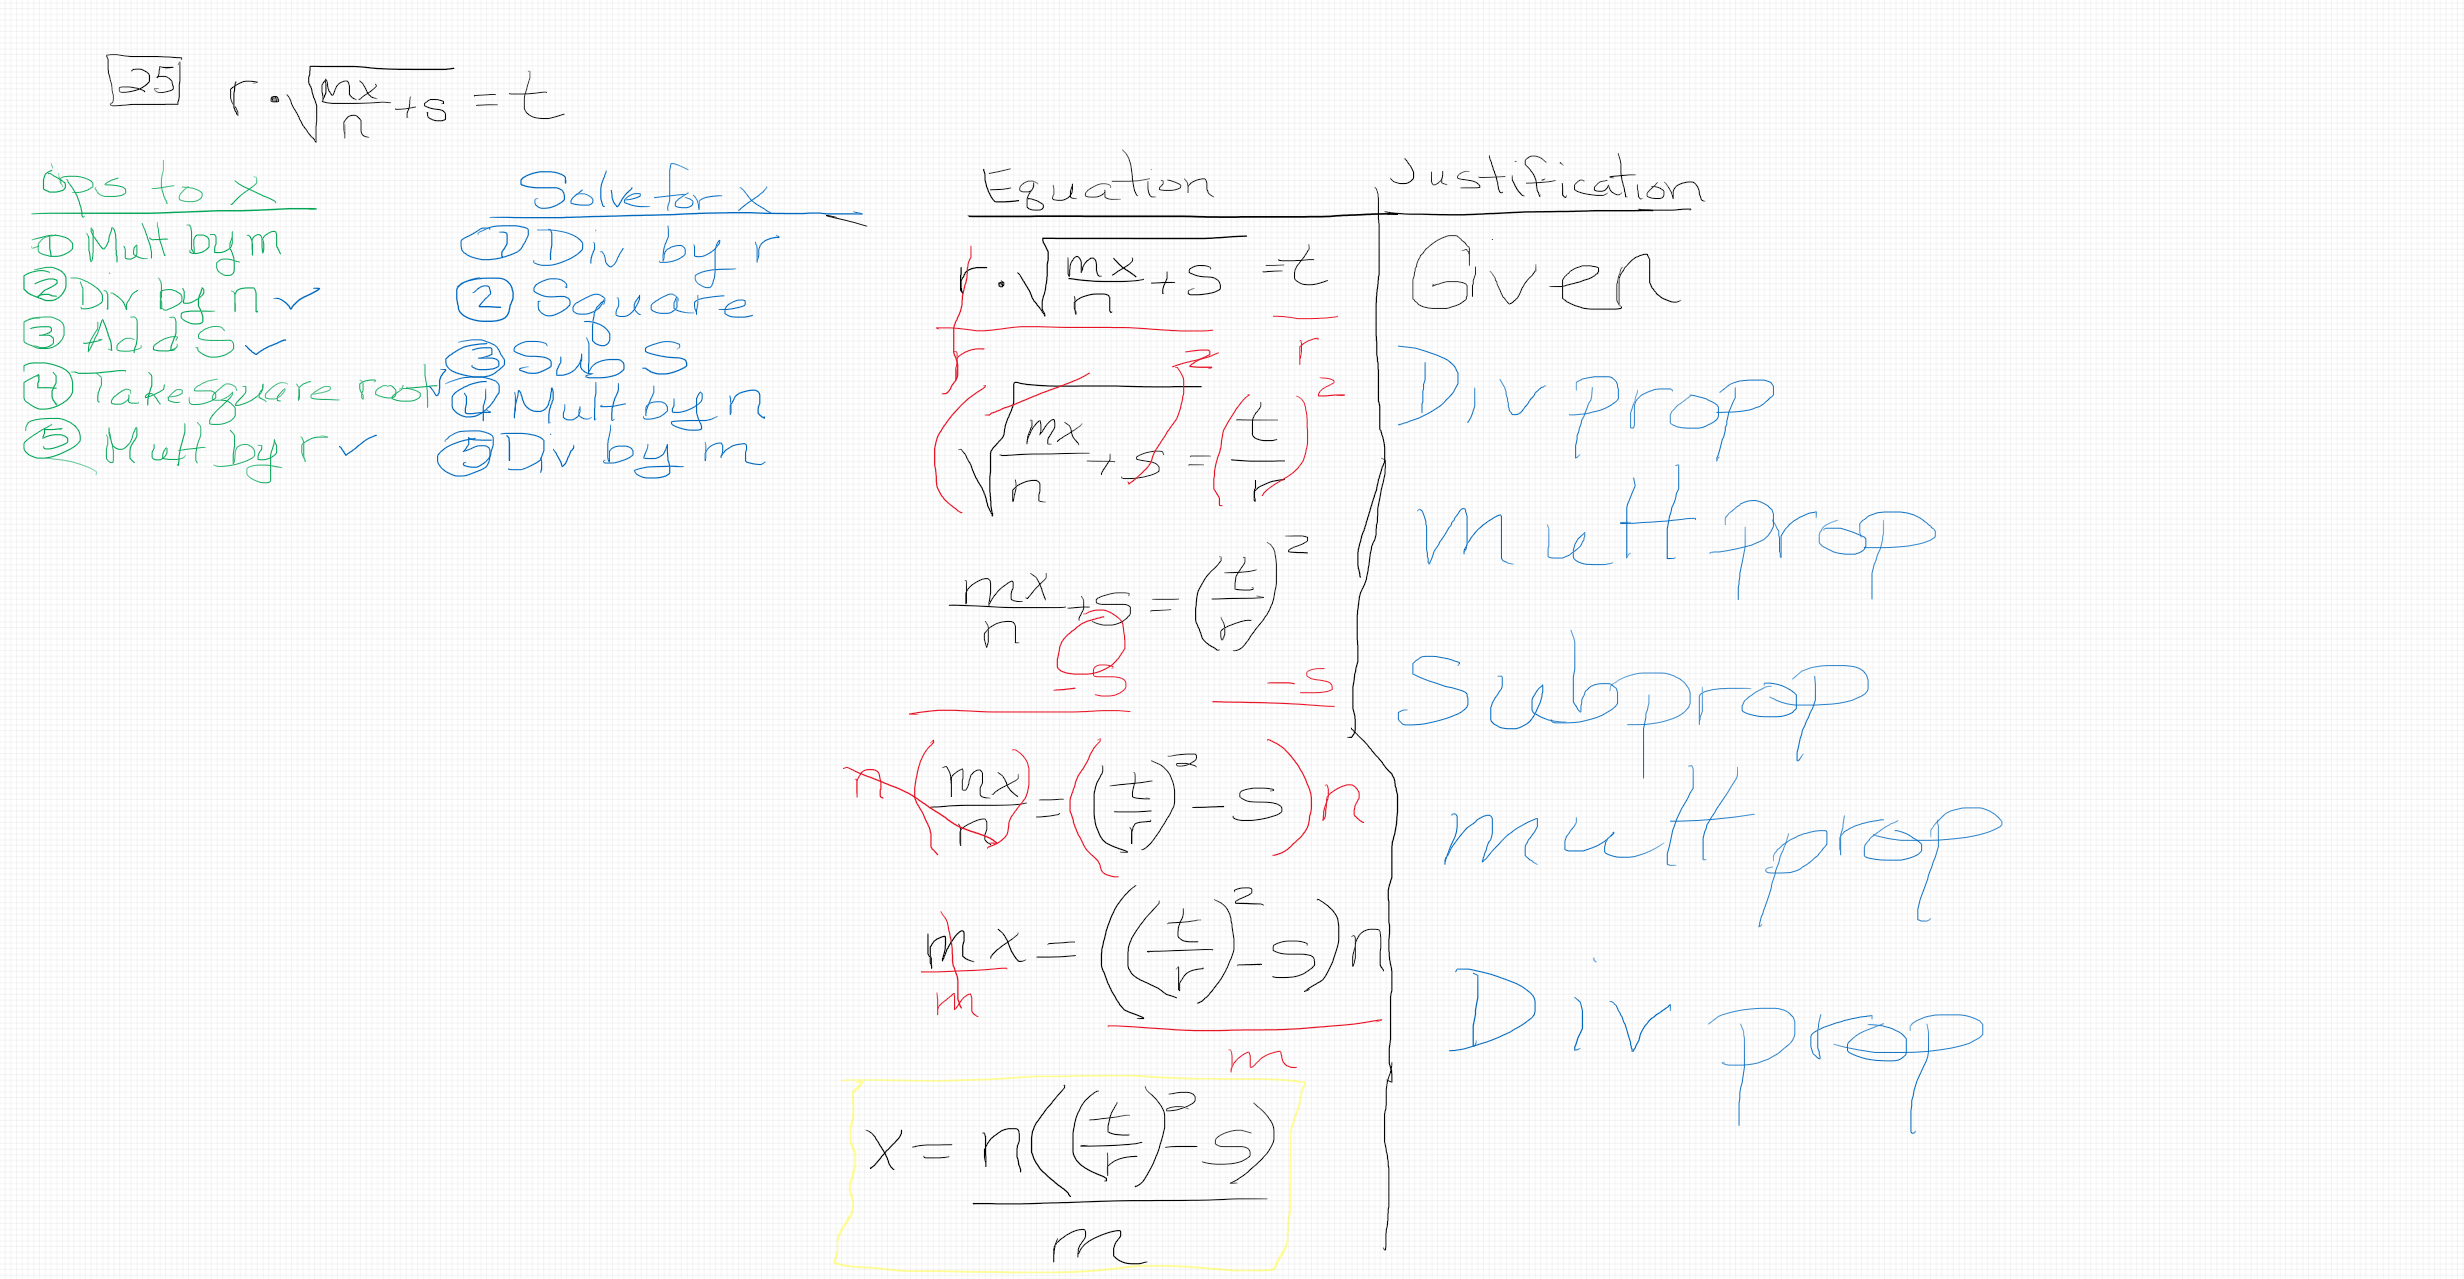 25 r·√(mx/n + s) = t
Ops to x
① Mult by m
② Div by n ✓
③ Add S ✓
④ Take square root ✓
⑤ Mult by r ✓
Solve for x
① Div by r
② Square
③ Sub S
④ Mult by n
⑤ Div by m
Equation
Justification
r·√(mx/n + s) = t
r r
Given
(√(mx/n + s))² = (t/r)²
Div prop
mx/n + s = (t/r)²
-s -s
Mult prop
n(mx/n) = ((t/r)² - s)n
Sub prop
mx = ((t/r)² - s)n
m m
mult prop
x = n((t/r)² - s)/m
Div prop